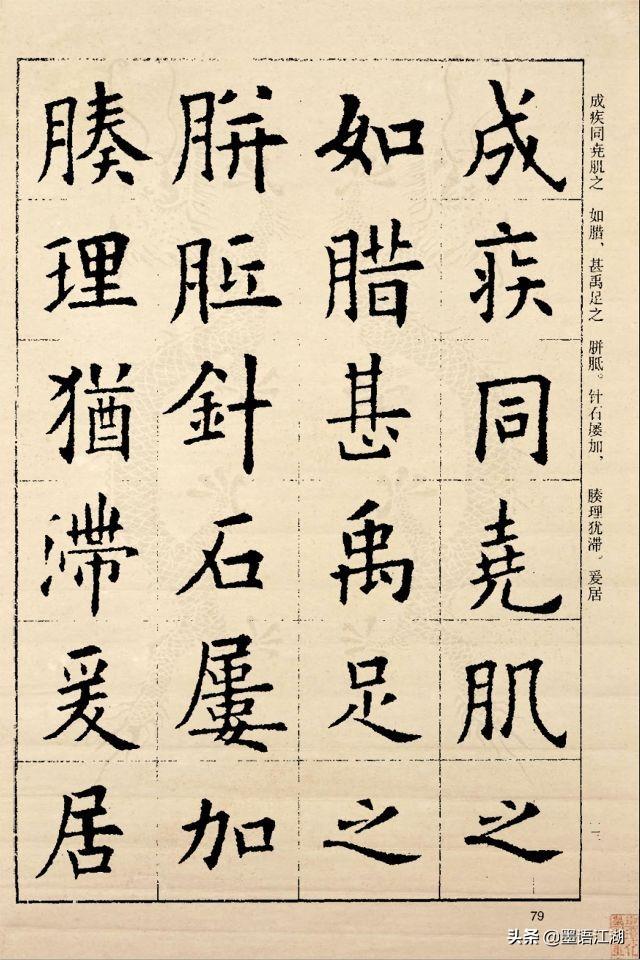 成疾同堯肌之
如腊甚禹足之
胼胝針石屢加
腠理猶滯爰居
成疾同尧肌之 如腊、甚禹足之 胼胝。针石屡加, 腠理犹滞。爰居
79
头条 @墨语江湖